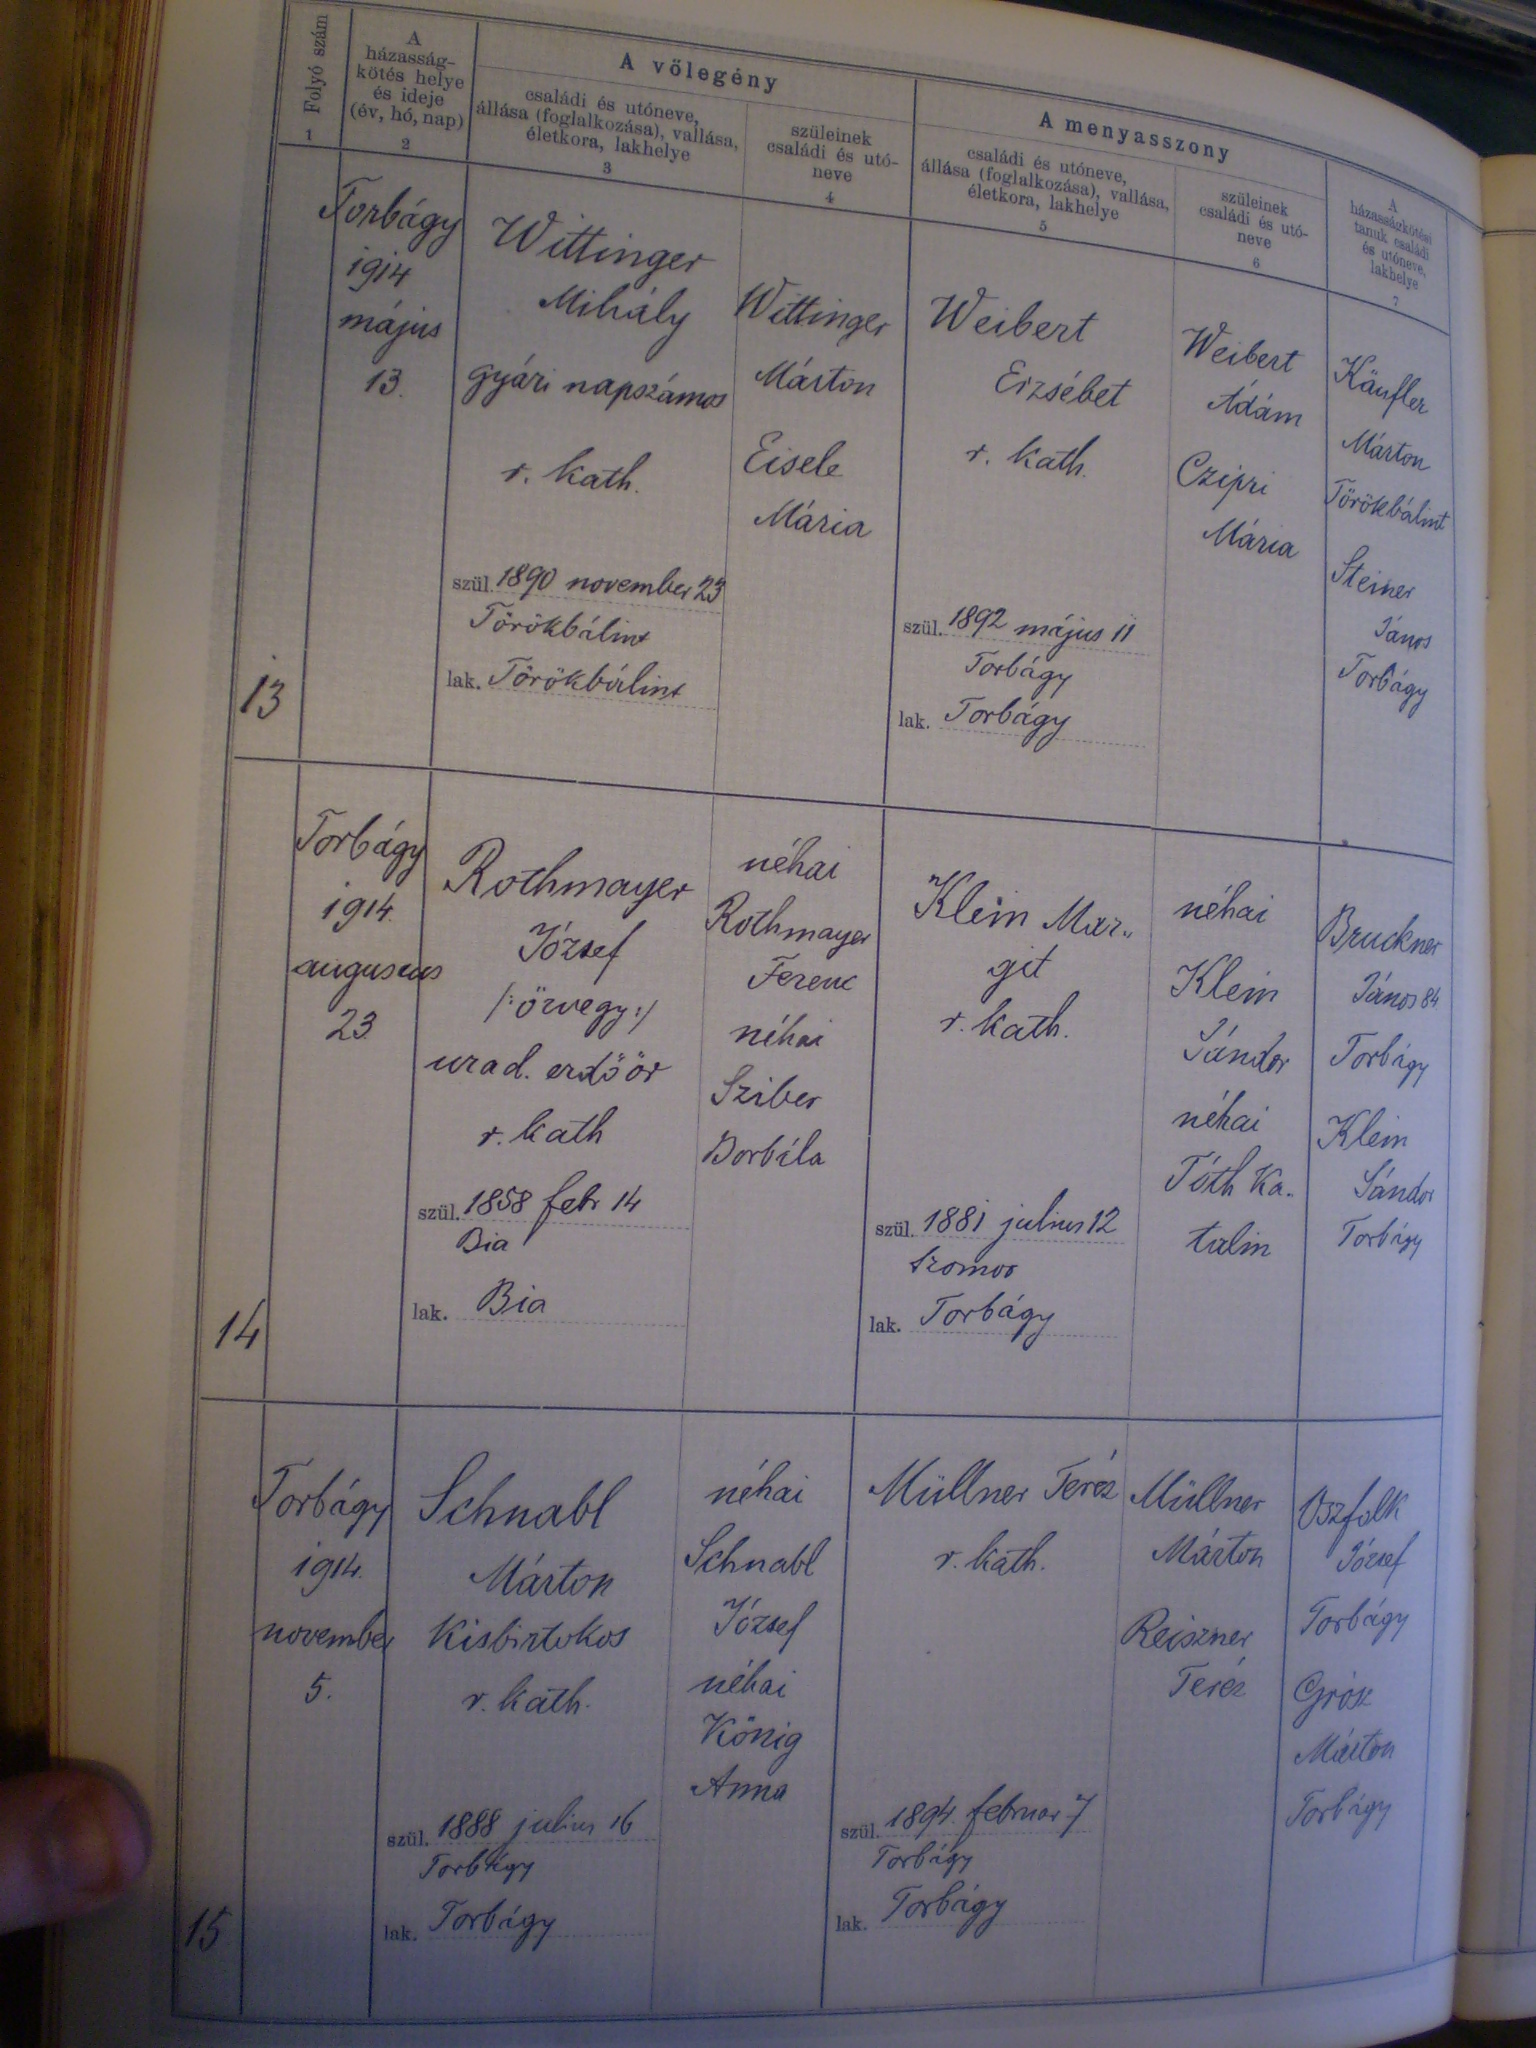 Folyó szám
1
A
házasság-
kötés helye
és ideje
(év, hó, nap)
2
A vőlegény
családi és utóneve,
állása (foglalkozása), vallása,
életkora, lakhelye
3
szüleinek
családi és utó-
neve
4
A menyasszony
családi és utóneve,
állása (foglalkozása), vallása,
életkora, lakhelye
5
szüleinek
családi és utó-
neve
6
A
házasságkötési
tanuk családi
és utóneve,
lakhelye
7
13
Torbágy
1914
május
13.
Wittinger
Mihály
gyári napszámos
r. kath.
szül. 1890 november 23
Törökbálint
lak. Törökbálint
Wittinger
Márton
Eisele
Mária
Weibert
Erzsébet
r. kath.
szül. 1892 május 11
Torbágy
lak. Torbágy
Weibert
Ádám
Czipri
Mária
Käufler
Márton
Törökbálint
Steiner
János
Torbágy
14
Torbágy
1914.
augusztus
23.
Rothmayer
József
/: özvegy :/
urad. erdőőr
r. kath
szül. 1858 febr 14
Bia
lak. Bia
néhai
Rothmayer
Ferenc
néhai
Sziber
Borbála
Klein Mar„
git
r. kath.
szül. 1881 julius 12
Szomor
lak. Torbágy
néhai
Klein
Sándor
néhai
Tóth Ka„
talin
Bruckner
János 84.
Torbágy
Klein
Sándor
Torbágy
15
Torbágy
1914.
november
5.
Schnabl
Márton
Kisbirtokos
r. kath.
szül. 1888 julius 16
Torbágy
lak. Torbágy
néhai
Schnabl
József
néhai
König
Anna
Müllner Teréz
r. kath.
szül. 1894 februar 7
Torbágy
lak. Torbágy
Müllner
Márton
Reiszner
Teréz
Oszfolk
József
Torbágy
Grósz
Márton
Torbágy